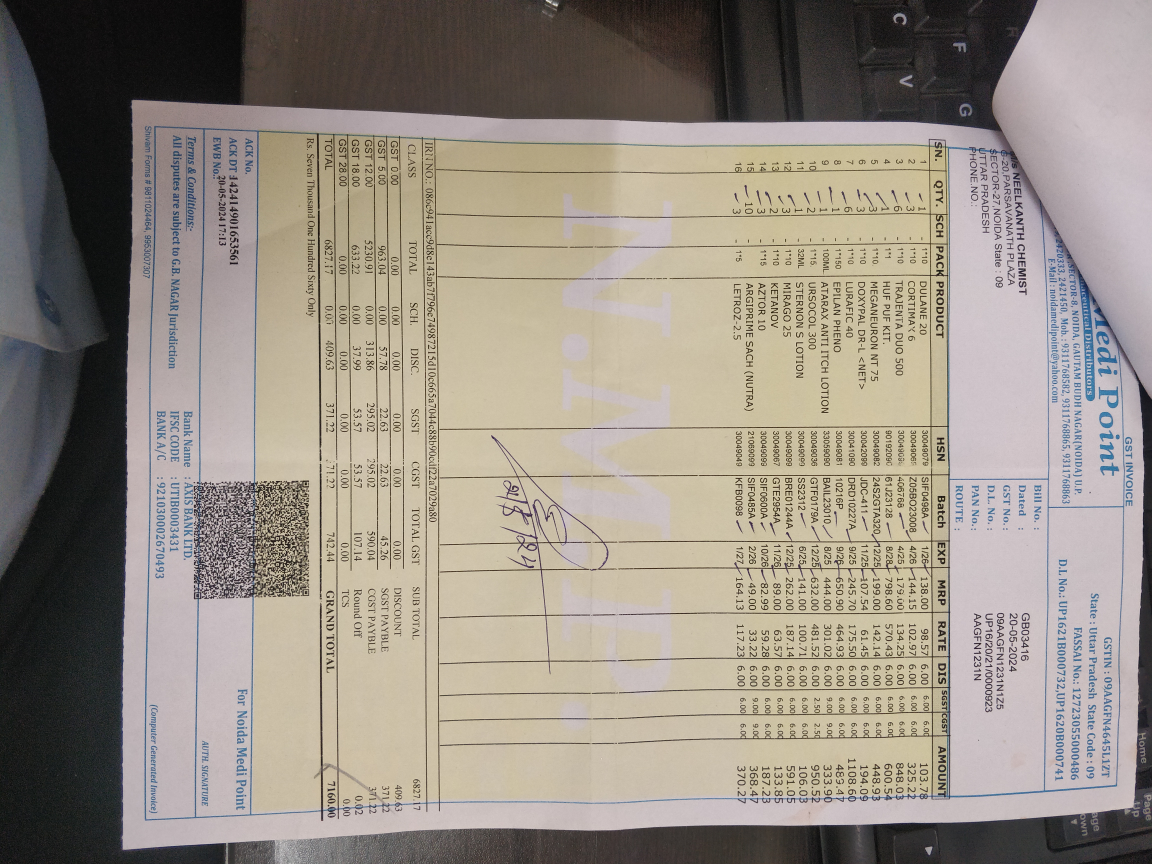 GST INVOICE
Medi Point
Pharmaceutical Distributors
SECTOR-8, NOIDA, GAUTAM BUDH NAGAR(NOIDA) U.P.
2420333, 2421450, Mob.: 9311768582, 9311768865, 9311768863
E-Mail : noidamedipoint@yahoo.com
GSTIN : 09AAGFN4645L1ZT
State : Uttar Pradesh State Code : 09
FASSAI No.: 12723055000486
D.L. No.: UP1621B000732,UP1620B000741
NEELKANTH CHEMIST
G-20,PARSAVANATH PLAZA
SECTOR-27 NOIDA State : 09
UTTAR PRADESH
PHONE.NO.:
Bill No. : GB03416
Dated : 20-05-2024
GST No. : 09AAGFN1231N1Z5
D.L. No. : UP16/20/21/0000923
PAN No.: AAGFN1231N
ROUTE :
SN. QTY. SCH PACK PRODUCT HSN Batch EXP MRP RATE DIS SGST CGST AMOUNT
1 1 - 1*10 DULANE 20 30049079 SIF0498A 1/26 138.00 98.57 6.00 6.00 6.00 103.78
2 3 - 1*10 CORTIMAX 6 Z05BO23008 4/26 144.15 102.97 6.00 6.00 6.00 325.22
3 6 - 1*10 TRAJENTA DUO 500 406768 4/25 179.00 134.25 6.00 6.00 6.00 848.03
4 1 - 1*1 HUF PUF KIT. 90192090 61J23128 8/28 798.60 570.43 6.00 6.00 6.00 600.54
5 3 - 1*10 MEGANEURON NT 75 30049082 24S2GTA320 12/25 199.00 142.14 6.00 6.00 6.00 448.93
6 3 - 1*10 DOXYPAL DR-L <NET> 30042099 JDC-411 11/25 107.54 61.45 6.00 6.00 194.09
7 6 - 1*10 LURAFIC 40 30041090 DRD10227A 9/25 245.70 175.50 6.00 6.00 6.00 1108.60
8 1 - 1*150 EPILAN PHENO 30049081 10216P 9/26 650.90 464.93 6.00 6.00 6.00 489.47
9 1 - 100ML ATARAX ANTI ITCH LOTION 33059090 BAIL23010 8/25 444.00 301.02 6.00 9.00 9.00 333.90
10 2 - 1*15 URSOCOL 300 30049036 GTF0179A 12/25 632.00 481.52 6.00 2.50 2.50 950.52
11 1 - 32ML STERNON S LOTION 30049099 SS2312 6/25 141.00 100.71 6.00 6.00 6.00 106.03
12 3 - 1*10 MIRAGO 25 30049099 BRE01244A 12/25 262.00 187.14 6.00 6.00 6.00 591.05
13 2 - 1*10 KETANOV 30049067 GTE2954A 11/26 89.00 63.57 6.00 6.00 6.00 133.85
14 3 - 1*15 AZTOR 10 30049099 SIF0600A 10/26 82.99 59.28 6.00 6.00 6.00 187.23
15 10 - ARGIPRIME SACH (NUTRA) 21069099 SIF0485A 2/26 49.00 33.22 6.00 9.00 9.00 368.47
16 3 - 1*5 LETROZ-2.5 30049049 KFB0098 1/27 164.13 117.23 6.00 6.00 6.00 370.27
N.M.P.
21/5/24
CLASS TOTAL SCH. DISC. SGST CGST TOTAL GST
GST 0.00 0.00 0.00 0.00 0.00 0.00 0.00
GST 5.00 963.04 0.00 57.78 22.63 22.63 45.26
GST 12.00 5230.91 0.00 313.86 295.02 295.02 590.04
GST 18.00 633.22 0.00 37.99 53.57 53.57 107.14
GST 28.00 0.00 0.00 0.00 0.00 0.00 0.00
TOTAL 6827.17 0.00 409.63 371.22 371.22 742.44
SUB TOTAL 6827.17
DISCOUNT 409.63
SGST PAYBLE 371.22
CGST PAYBLE 371.22
Round Off 0.02
TCS 0.00
GRAND TOTAL 7160.00
Rs. Seven Thousand One Hundred Sixty Only
ACK No.
ACK DT 142414901653561
EWB No. 20-05-2024 17:13
Terms & Conditions:-
All disputes are subject to G.B. NAGAR Jurisdiction
Bank Name : AXIS BANK LTD.
IFSC CODE : UTIB0003431
BANK A/C : 921030002670493
For Noida Medi Point
AUTH. SIGNATURE
(Computer Generated Invoice)
Shivam Forms # 9811024464, 9953007307
C
F
V
G
Home
Page
Up